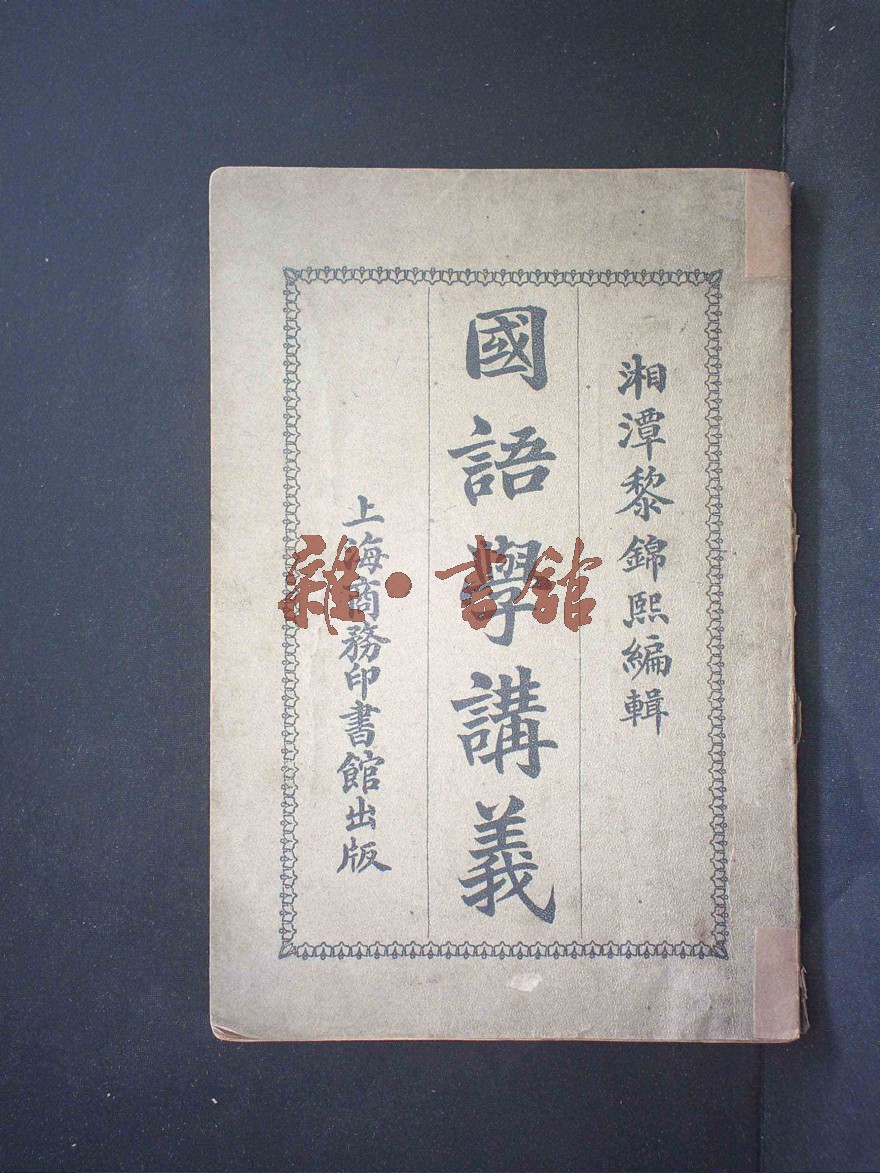 湘潭黎錦熙編輯
國語學講義
上海商務印書館出版
雜·書館